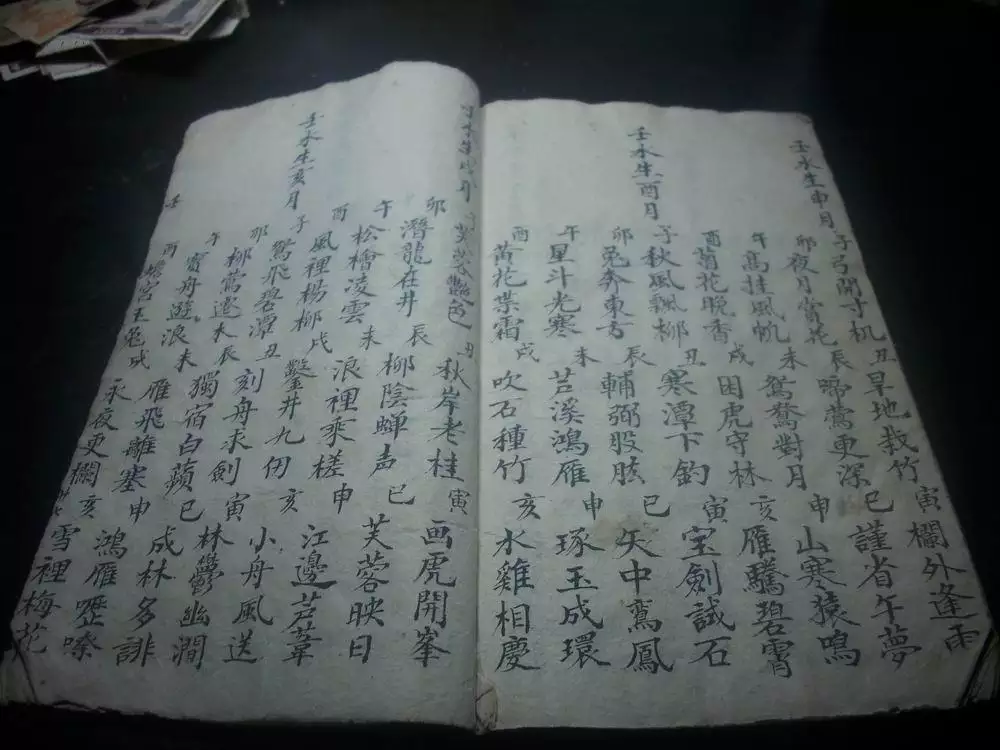 壬水生申月
子弓開寸机丑旱地栽竹寅欄外逢雨
卯夜月賞花辰啼鶯更深巳謹省午夢
午高挂風帆未鴛鴦對月申山寒猿鳴
酉菊花晚香戌困虎守林亥雁騰碧霄
壬水生酉月
子秋風飄柳丑寒潭下釣寅宝劍試石
卯兔奔東方辰輔弼股肱巳矢中鸞鳳
午星斗光寒未芦溪鴻雁申琢玉成環
酉黄花葉霜戌吹石種竹亥水雞相慶
壬水生戌月
芙蓉艷色丑秋岸老桂寅画虎開峯
卯潛龍在井辰柳陰蝉声巳芙蓉映日
午松檜凌雲未浪裡乘槎申江邊芦葦
酉風裡楊柳戌鑿井九仞亥小舟風送
壬水生亥月
子鴛飛碧潭丑刻舟求劍寅林鬱幽澗
卯柳鶯遷木辰獨宿白蘋巳成林多誹
午賓舟遊浪未雁飛離塞申鴻雁嚦嗦
酉蟾宮玉兔戌永夜更欄亥雪裡梅花
壬